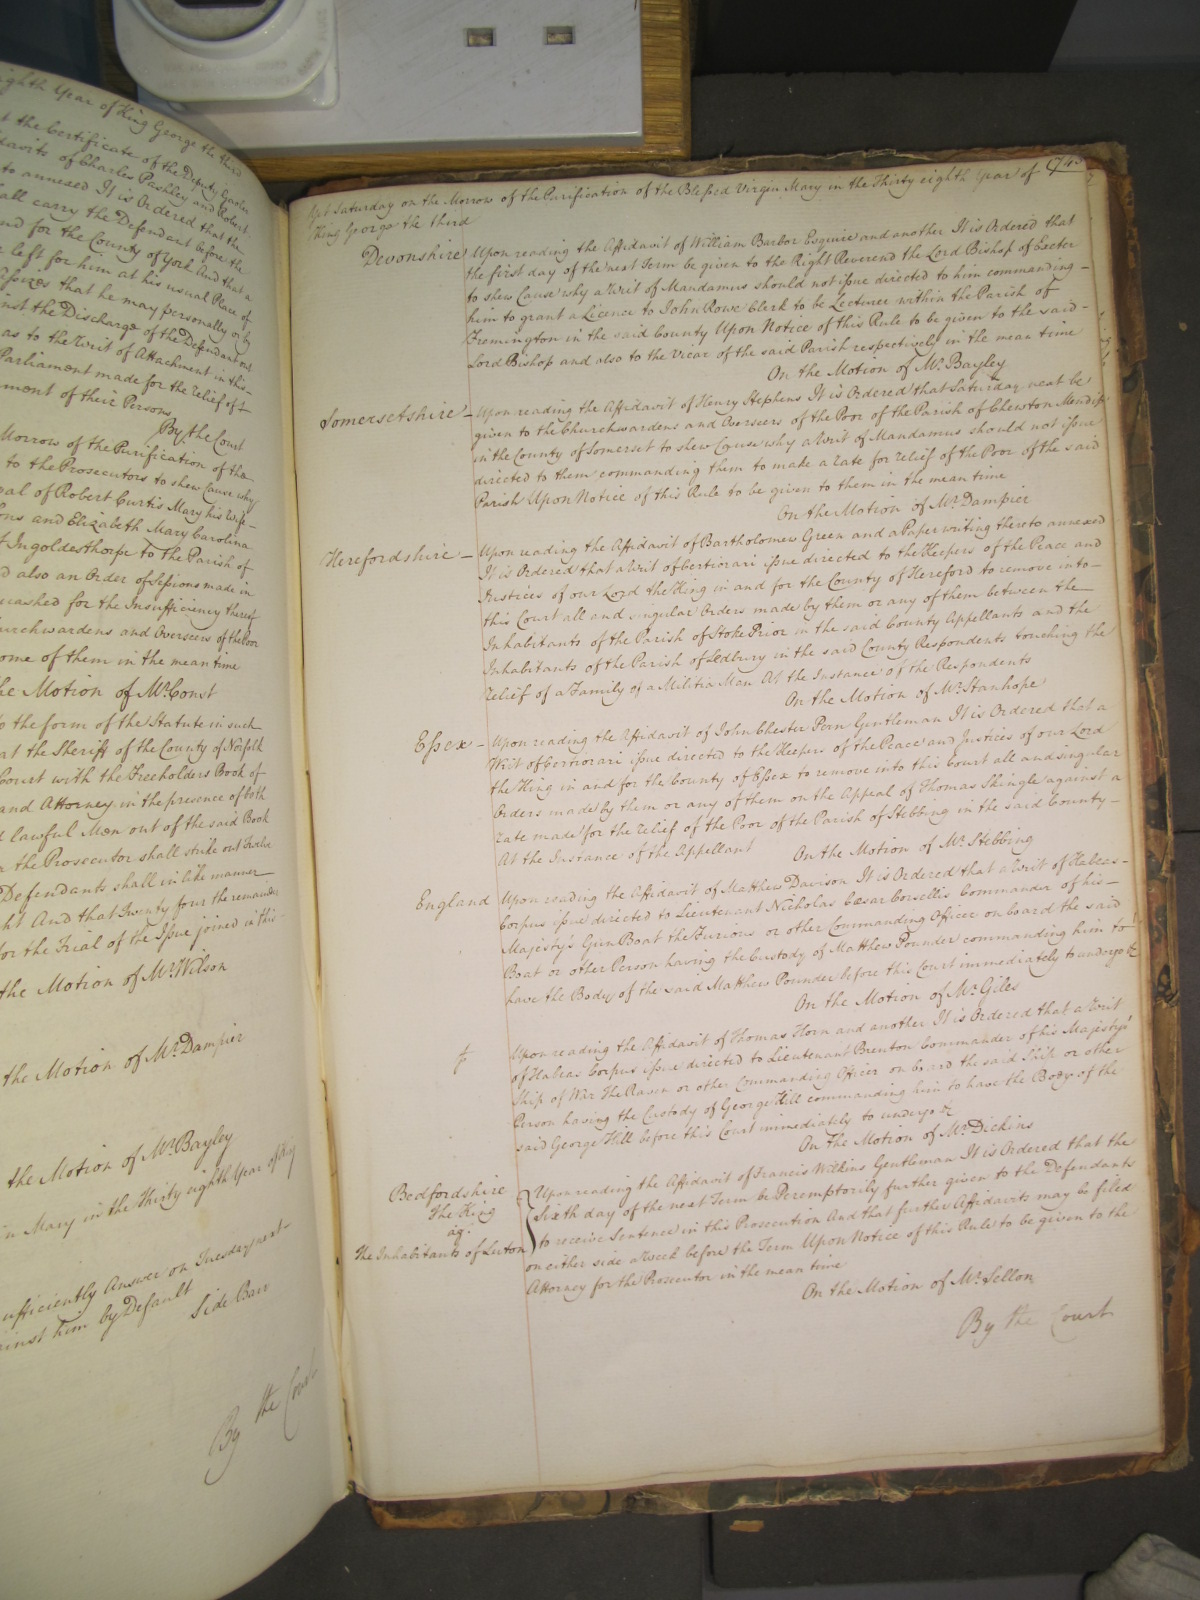 eighth Year of King George the third
t the Certificate of the Deputy Gaoler
davits of Charles Pashley and Robert
to annexed It is Ordered that the
all carry the Defendant before the
nd for the County of York And that a
left for him at his usual Place of
Assizes that he may personally or by
inst the Discharge of the Defendant out
as to the Writ of Attachment in this
Parliament made for the relief of
ment of their Persons
By the Court
Morrow of the Purification of the
to the Prosecutors to shew Cause why
val of Robert Curtis Mary his Wife
ons and Elizabeth Mary Carolina
f Ingoldesthorpe to the Parish of
d also an Order of Sessions made in
uashed for the Insufficiency thereof
urchwardens and Overseers of the Poor
ome of them in the mean time
he Motion of Mr. Const
o the form of the Statute in such
at the Sheriff of the County of Norfolk
Court with the Freeholders Book of
and Attorney in the presence of both
d lawful Men out of the said Book
n the Prosecutor shall strike out Twelve
Defendants shall in like manner
ht And that Twenty four the remainder
for the Trial of the Issue joined in this
the Motion of Mr. Wilson
the Motion of Mr. Dampier
the Motion of Mr. Bayley
n Mary in the Thirty eighth Year of King
ufficiently Answer on Tuesday next
ainst him by Default
Side Barr
By the Court
Yet Saturday on the Morrow of the Purification of the Blessed Virgin Mary in the Thirty eighth Year of
King George the third
Devonshire Upon reading the Affidavit of William Barbor Esquire and another It is Ordered that
the first day of the next Term be given to the Right Reverend the Lord Bishop of Exeter
to shew Cause why a Writ of Mandamus should not issue directed to him commanding
him to grant a Licence to John Rowe Clerk to be Lecturer within the Parish of
Fremington in the said County Upon Notice of this Rule to be given to the said
Lord Bishop and also to the Vicar of the said Parish respectively in the mean time
On the Motion of Mr. Bayley
Somersetshire Upon reading the Affidavit of Henry Stephens It is Ordered that Saturday next be
given to the Churchwardens and Overseers of the Poor of the Parish of Chewton Mendip
in the County of Somerset to shew Cause why a Writ of Mandamus should not issue
directed to them commanding them to make a rate for relief of the Poor of the said
Parish Upon Notice of this Rule to be given to them in the mean time
On the Motion of Mr. Dampier
Herefordshire Upon reading the Affidavit of Bartholomew Green and a Paper writing thereto annexed
It is Ordered that a Writ of Certiorari issue directed to the Keepers of the Peace and
Justices of our Lord the King in and for the County of Hereford to remove into
this Court all and singular Orders made by them or any of them between the
Inhabitants of the Parish of Stoke Prior in the said County Appellants and the
Inhabitants of the Parish of Ledbury in the said County Respondents touching the
relief of a Family of a Militia Man At the Instance of the Respondents
On the Motion of Mr. Stanhope
Essex Upon reading the Affidavit of John Chester Pern Gentleman It is Ordered that a
Writ of Certiorari issue directed to the Keepers of the Peace and Justices of our Lord
the King in and for the County of Essex to remove into this Court all and singular
Orders made by them or any of them on the Appeal of Thomas Shingle against a
rate made for the relief of the Poor of the Parish of Stebbing in the said County
At the Instance of the Appellant
On the Motion of Mr. Stebbing
England Upon reading the Affidavit of Matthew Davison It is Ordered that a Writ of Habeas
Corpus issue directed to Lieutenant Nicholas Cæsar Corsellis Commander of his
Majesty's Gun Boat the Furious or other Commanding Officer on board the said
Boat or other Person having the Custody of Matthew Pounder commanding him to
have the Body of the said Matthew Pounder before this Court immediately to undergo &c
On the Motion of Mr. Giles
Upon reading the Affidavit of Thomas Horn and another It is Ordered that a Writ
of Habeas Corpus issue directed to Lieutenant Brenton Commander of his Majesty's
Ship of War The Raven or other Commanding Officer on board the said Ship or other
Person having the Custody of George Hill commanding him to have the Body of the
said George Hill before this Court immediately to undergo &c
On the Motion of Mr. Dickins
Bedfordshire
The King
agt.
The Inhabitants of Luton
Upon reading the Affidavit of Francis Wilkins Gentleman It is Ordered that the
Sixth day of the next Term be Peremptorily further given to the Defendants
to receive Sentence in this Prosecution And that further Affidavits may be filed
on either side a Week before the Term Upon Notice of this Rule to be given to the
Attorney for the Prosecutor in the mean time
On the Motion of Mr. Sellon
By the Court